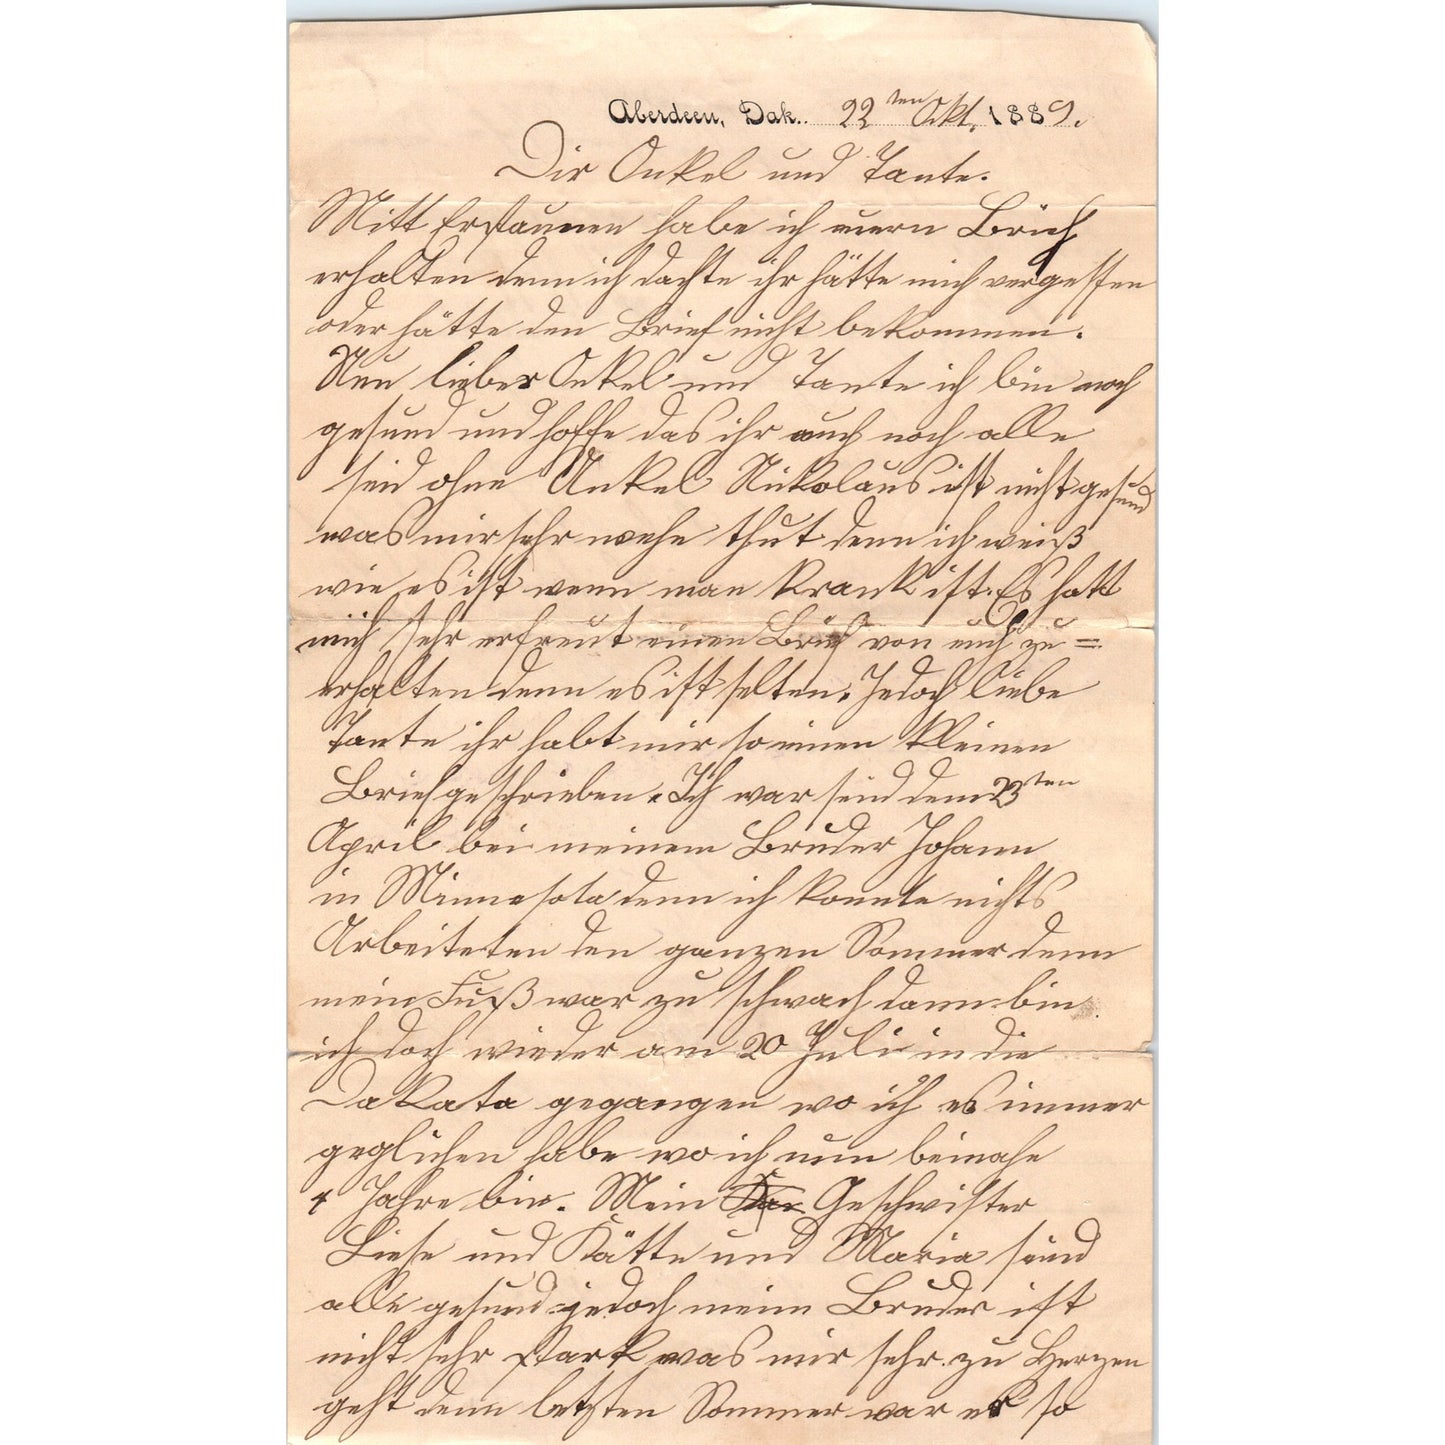 Aberdeen, Dak. 22ten Okt. 1889.
Dir Onkel und Tante.
Mitt Erstaunen habe ich euern Brief
erhalten denn ich dachte ihr hätte mich vergessen
oder hätte den Brief nicht bekommen.
Nun lieber Onkel und Tante ich bin noch
gesund und hoffe das ihr auch noch alle
seid ohne Unkel Nikolaus ist nicht gesund
was mir sehr wehe thut denn ich weiß
wie es ist wenn man krank ist. Es hatt
mich sehr erfreut einen Brief von euch zu=
erhalten denn es ist selten. Jedoch liebe
Tante ihr habt mir so einen kleinen
Brief geschrieben. Ich war seid dem 23ten
April bei meinem Bruder Johann
in Minnesota denn ich konnte nichts
Arbeiteten den ganzen Sommer denn
mein Fuß war zu schwach dann bin
ich doch wieder am 20 Juli in die
Dakata gegangen wo ich es immer
geglichen habe wo ich nun beinahe
4 Jahre bin. Mein Geschwister
Liese und Kätte und Maria sind
alle gesund jedoch meim Bruder ist
nicht sehr stark was mir sehr zu Herzen
geht denn letzten Sommer war er so